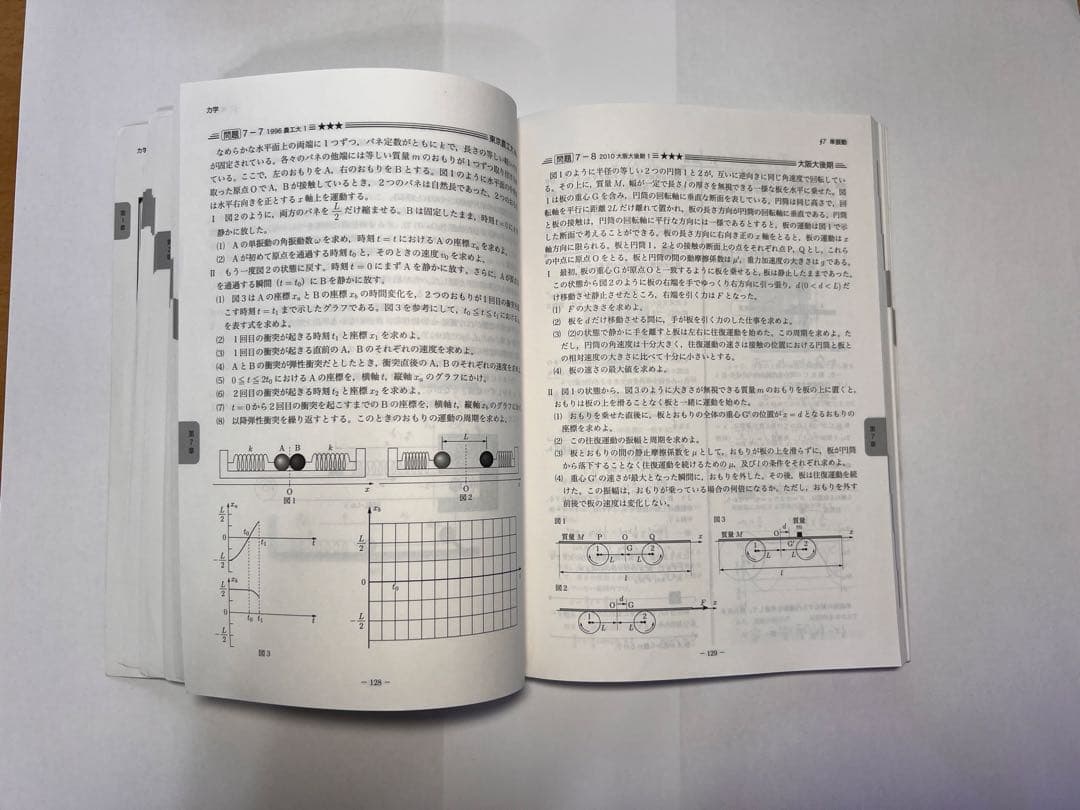 力学
問題 7-7 1996 農工大 1 ★★★ 東京農工大
なめらかな水平面上の両端に1つずつ，バネ定数がともにkで，長さの等しい軽い
が固定されている。各々のバネの他端には等しい質量mのおもりが1つずつ取り付け
ている。ここで，左のおもりをA，右のおもりをBとする。図1のように水平面の
取った原点OでA，Bが接触しているとき，2つのバネは自然長であった。2つのお
は水平右向きを正とするx軸上を運動する。
I 図2のように，両方のバネをL/2だけ縮ませる。Bは固定したまま，時刻t=0に
静かに放した。
(1) Aの単振動の角振動数ωを求め，時刻t=tにおけるAの座標xₐを求めよ。
(2) Aが初めて原点を通過する時刻t₀と，そのときの速度v₀を求めよ。
II もう一度図2の状態に戻す。時刻t=0にまずAを静かに放す。さらに，Aが
を通過する瞬間（t=t₀）にBを静かに放す。
(1) 図3はAの座標xₐとBの座標x_bの時間変化を，2つのおもりが1回目の衝突を
こす時刻t=t₁まで示したグラフである。図3を参考にして，t₀≦t≦t₁における
を表す式を求めよ。
(2) 1回目の衝突が起きる時刻t₁と座標x₁を求めよ。
(3) 1回目の衝突が起きる直前のA，Bのそれぞれの速度を求めよ。
(4) AとBの衝突が弾性衝突だとしたとき，衝突直後のA，Bのそれぞれの速度を求
(5) 0≦t≦2t₀におけるAの座標を，横軸t，縦軸xₐのグラフにかけ。
(6) 2回目の衝突が起きる時刻t₂と座標x₂を求めよ。
(7) t=0から2回目の衝突を起こすまでのBの座標を，横軸t，縦軸x_bのグラフに
(8) 以降弾性衝突を繰り返すとする。このときのおもりの運動の周期を求めよ。
k A B k
O x
図1
L
O
図2
xₐ
L/2
0 t₀ t₁ t
-L/2
x_b
L/2
0 t₀ t₁ t
-L/2
図3
x_b
L/2
0 t₀
-L/2
- 128 -
第1章
第7章
§7 単振動
問題 7-8 2010 大阪大後期 1 ★★★ 大阪大後期
図1のように半径の等しい2つの円筒1と2が，互いに逆向きに同じ角速度で回転してい
る。その上に，質量M，幅が一定で長さlの厚さを無視できる一様な板を水平に乗せた。図
1は板の重心Gを含み，円筒の回転軸に垂直な断面を表している。円筒は同じ高さで，回
転軸を平行に距離2Lだけ離れて置かれ，板の長さ方向が円筒の回転軸に垂直である。円筒
と板の接触は，円筒の回転軸に平行な方向には一様であるとすると，板の運動は図1で示
した断面で考えることができる。板の長さ方向に右向き正のx軸をとると，板の運動はx
軸方向に限られる。板と円筒1，2との接触の断面上の点をそれぞれ点P，Qとし，これら
の中点に原点Oをとる。板と円筒の間の動摩擦係数はμ'，重力加速度の大きさはgである。
I 最初，板の重心Gが原点Oと一致するように板を乗せると，板は静止したままであった。
この状態から図2のように板の右端を手でゆっくり右方向に引っ張り，d(0<d<L)だ
け移動させ静止させたところ，右端を引く力はFとなった。
(1) Fの大きさを求めよ。
(2) 板をdだけ移動させる間に，手が板を引く力のした仕事を求めよ。
(3) (2)の状態で静かに手を離すと板は左右に往復運動を始めた。この周期を求めよ。た
だし，円筒の角速度は十分大きく，往復運動の速さは接触の位置における円筒と板と
の相対速度の大きさに比べて十分に小さいとする。
(4) 板の速さの最大値を求めよ。
II 図1の状態から，図3のように大きさが無視できる質量mのおもりを板の上に置くと，
おもりは板の上を滑ることなく板と一緒に運動を始めた。
(1) おもりを乗せた直後に，板とおもりの全体の重心G'の位置がx=dとなるおもりの
座標を求めよ。
(2) この往復運動の振幅と周期を求めよ。
(3) 板とおもりの間の静止摩擦係数をμとして，おもりが板の上を滑らずに，板が円筒
から落下することなく往復運動を続けるためのμ，及びlの条件をそれぞれ求めよ。
(4) 重心G'の速さが最大となった瞬間に，おもりを外した。その後，板は往復運動を続
けた。この振幅は，おもりが乗っている場合の何倍になるか。ただし，おもりを外す
前後で板の速度は変化しない。
図1
質量M P O Q x
1 G 2
L L
l
図3
O d 質量 m x
1 G' 2
L L
l
図2
O d G F x
1 2
L L
- 129 -
第7章